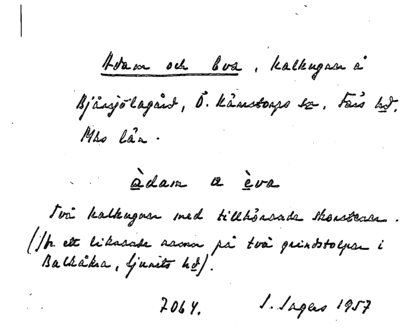 Adam och Eva, kalkugnar å
Bjärsjölagård, Ö. Kärrstorps sn, Färs hd,
Mhs län.
àdam a èva
Två kalkugnar med tillhörande skorstenar.
(Jfr ett liknande namn på två grindstolpar i
Balkåkra, Ljunits hd).
7064. S. Ingers 1957